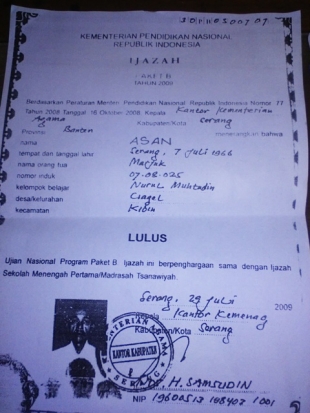 KEMENTERIAN PENDIDIKAN NASIONAL
REPUBLIK INDONESIA
IJAZAH
PAKET B
TAHUN 2009
Berdasarkan Peraturan Menteri Pendidikan Nasional Republik Indonesia Nomor 77
Tahun 2008 Tanggal 16 Oktober 2008, Kepala Kantor Kementerian
Agama Kabupaten/Kota Serang
Provinsi Banten menerangkan bahwa
nama ASAN
tempat dan tanggal lahir Serang, 7 Juli 1966
nama orang tua
nomor induk 07-08-025
kelompok belajar Nurul Muhtadin
desa/kelurahan
kecamatan Kibin
LULUS
Ujian Nasional Program Paket B. Ijazah ini berpenghargaan sama dengan Ijazah
Sekolah Menengah Pertama/Madrasah Tsanawiyah.
Serang, 29 Juli 2009
Kepala Kantor Kemenag
Kabupaten/Kota Serang
KEMENTERIAN AGAMA
KANTOR KABUPATEN
SERANG
H. SAMSUDIN
NIP